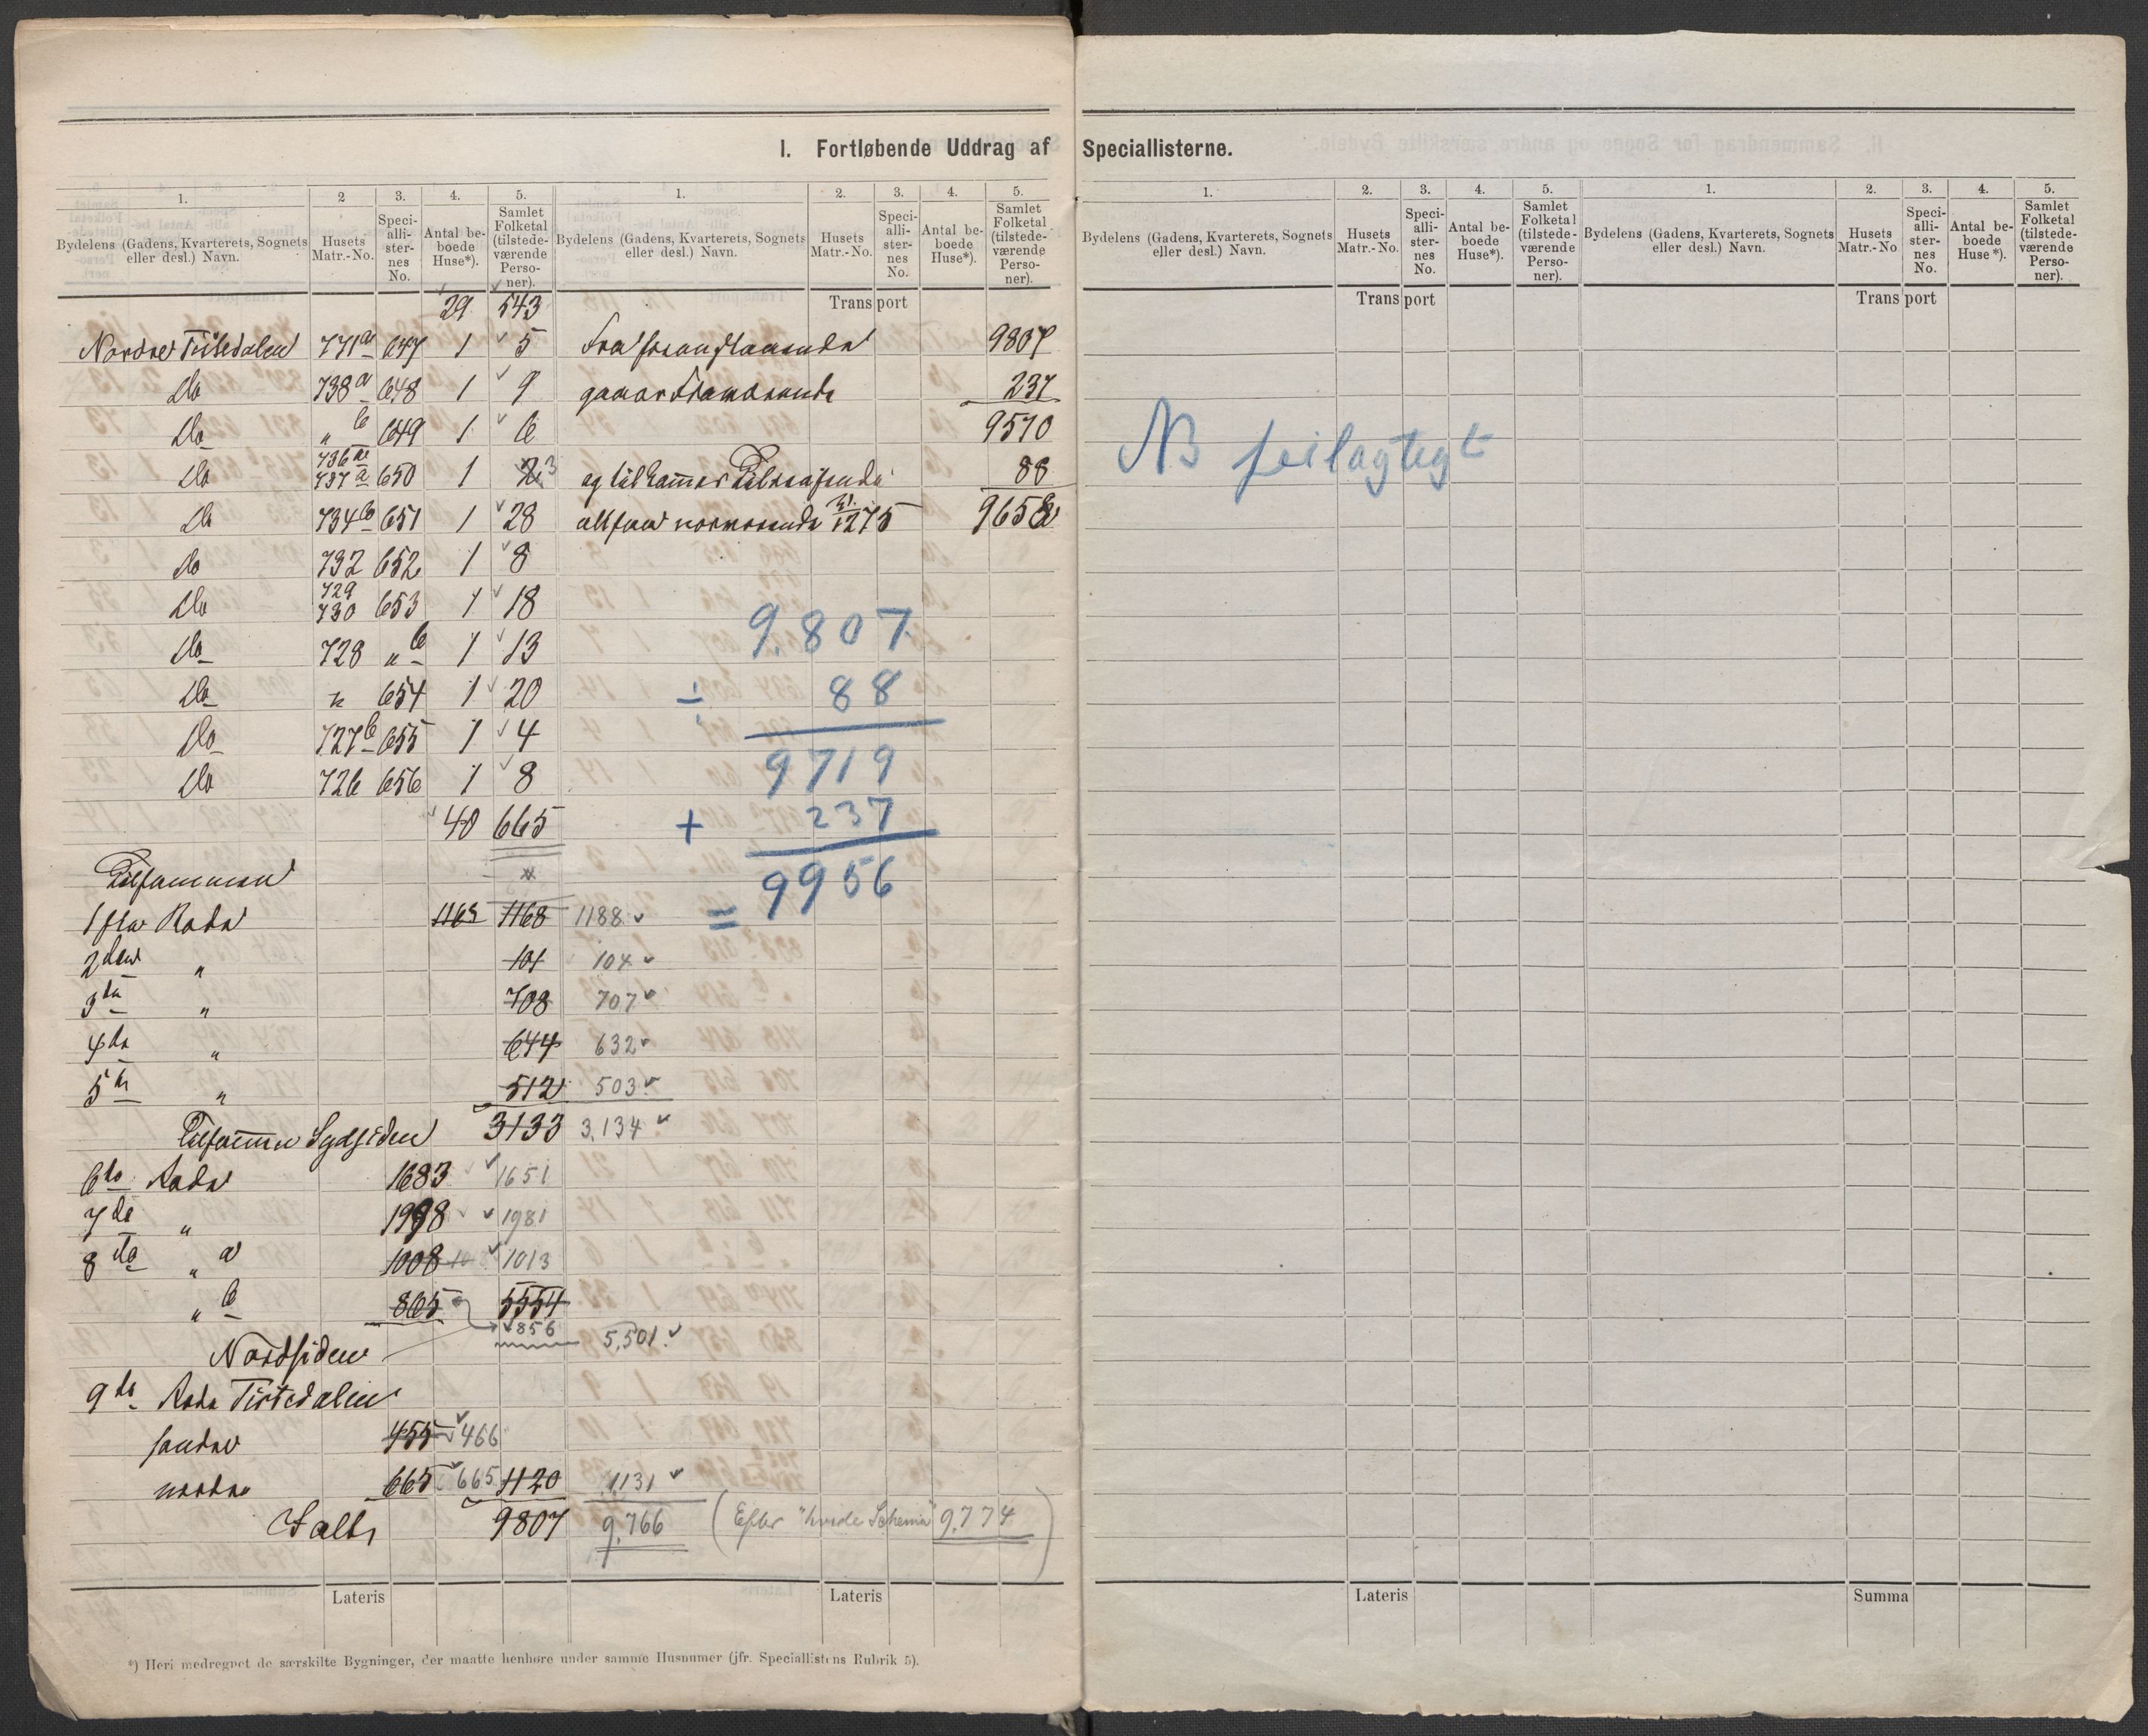 I. Fortløbende Uddrag af Speciallisterne.
1. 2 3. 4. 5. 1. 2. 3. 4. 5.
Bydelens (Gadens, Kvarterets, Sognets eller desl.) Navn. Husets Matr.-No. Speci-alli-ster-nes No. Antal be-boede Huse*). Samlet Folketal (tilstede-værende Perso-ner). Bydelens (Gadens, Kvarterets, Sognets eller desl.) Navn. Husets Matr.-No. Speci-alli-ster-nes No. Antal be-boede Huse*). Samlet Folketal (tilstede-værende Perso-ner).
29 543 Transport
Nordre Tistedalen 771a 647 1 5
Do 738a 648 1 9
Do " b 649 1 6
Do 736 737a 650 1 3
Do 734b 651 1 28
Do 732 652 1 8
Do 729 730 653 1 18
Do 728 " b 1 13
Do " 654 1 20
Do 727b 655 1 4
Do 726 656 1 8
40 665
Tilsammen
1ste Rode 1168 1168 1188
2den " 101 104
3die " 708 707
4de " 644 632
5te " 512 503
Tilsammen Sydsiden 3133 3,134
6te Rode 1683 1651
7de " 1998 1981
8de " a 1008 1013
" b 865 5554
856 5,501
Nordsiden
9de Rode Tistedalen
søndre 455 466
nordre 665 665 1120 1131
Ialt 9807 9,766 (Efter "hvide Schema" 9,774)
Lateris Lateris
*) Heri medregnet de særskilte Bygninger, der maatte henhøre under samme Husnumer (jfr. Speciallistens Rubrik 5).
9807
237
9570
og tilkommer 88
1275 9658
9.807
÷ 88
9719
+ 237
= 9956
1. 2. 3. 4. 5. 1. 2. 3. 4. 5.
Bydelens (Gadens, Kvarterets, Sognets eller desl.) Navn. Husets Matr.-No. Speci-alli-ster-nes No. Antal be-boede Huse*). Samlet Folketal (tilstede-værende Perso-ner). Bydelens (Gadens, Kvarterets, Sognets eller desl.) Navn. Husets Matr.-No Speci-alli-ster-nes No. Antal be-boede Huse*). Samlet Folketal (tilstede-værende Perso-ner).
Transport Transport
NB feilagtigt
Lateris Summa